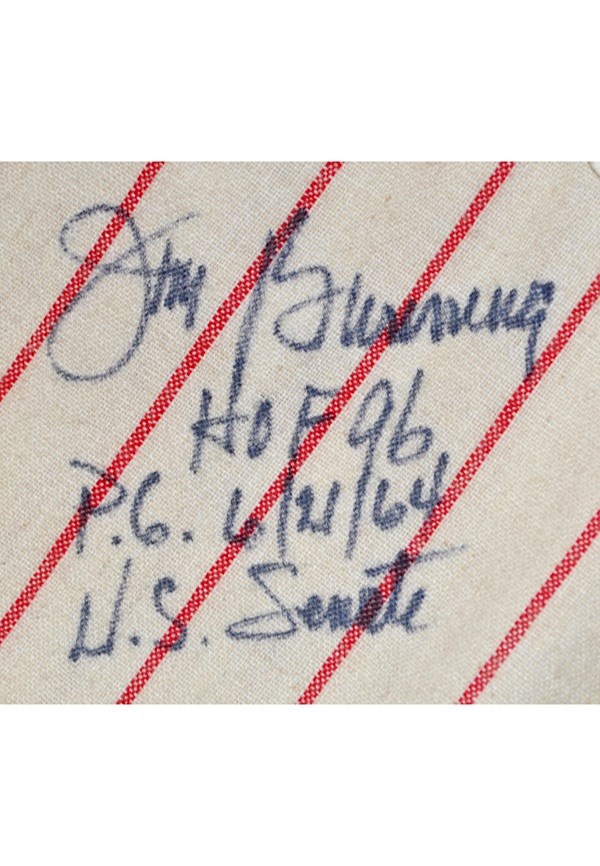 Jim Bunning
HOF 96
P.G. 6/21/64
U.S. Senate